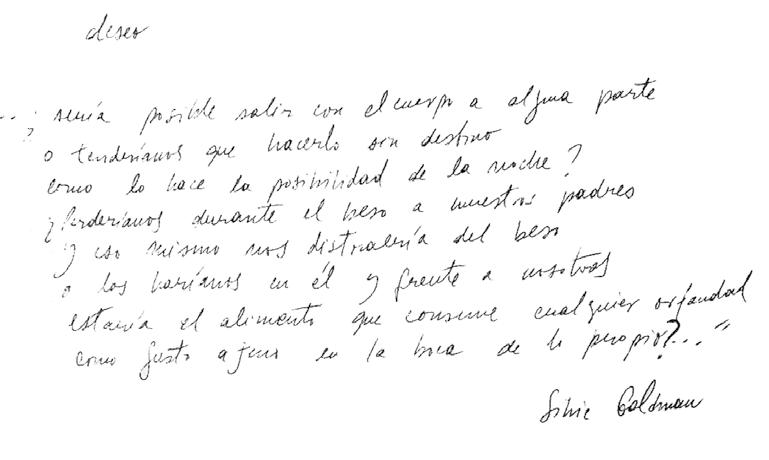 deseo
... ¿ sería posible salir con el cuerpo a alguna parte
o tendríamos que hacerlo sin destino
como lo hace la posibilidad de la noche?
¿Perderíamos durante el beso a nuestros padres
y eso mismo nos distraería del beso
o los haríamos en él y frente a nosotros
estaría el alimento que consume cualquier orfandad
como gusto ajeno en la boca de lo propio?..."
Silvia Goldman